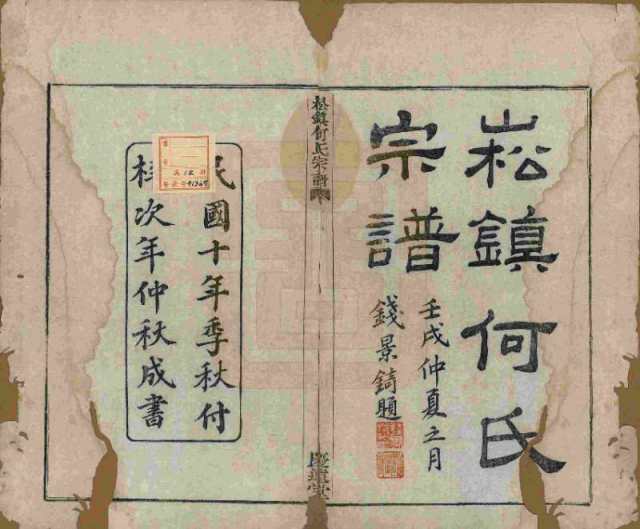 崧鎮何氏
宗譜
壬戌仲夏之月
錢景錡題
崧鎮何氏宗譜
民國十年季秋付
梓次年仲秋成書